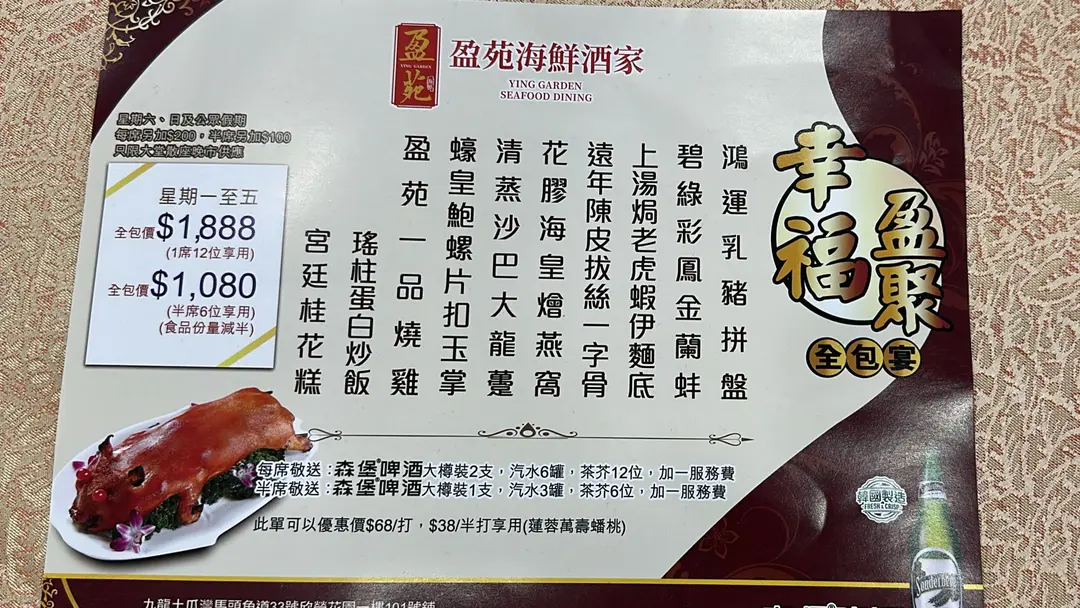 盈苑
YING GARDEN
盈苑海鮮酒家
YING GARDEN
SEAFOOD DINING
幸福
盈聚
全包宴
星期六、日及公眾假期
每席另加$200，半席另加$100
只限大堂散座晚市供應
星期一至五
全包價$1,888
(1席12位享用)
全包價$1,080
(半席6位享用)
(食品份量減半)
鴻運乳豬拼盤
碧綠彩鳳金蘭蚌
上湯焗老虎蝦伊麵底
遠年陳皮拔絲一字骨
花膠海皇燴燕窩
清蒸沙巴大龍躉
蠔皇鮑螺片扣玉掌
盈苑一品燒雞
瑤柱蛋白炒飯
宮廷桂花糕
每席敬送：森堡啤酒大樽裝2支，汽水6罐，茶芥12位，加一服務費
半席敬送：森堡啤酒大樽裝1支，汽水3罐，茶芥6位，加一服務費
此單可以優惠價$68/打，$38/半打享用(蓮蓉萬壽蟠桃)
韓國製造
FRESH & CRISP
九龍土瓜灣馬頭角道33號欣榮花園一樓101號舖